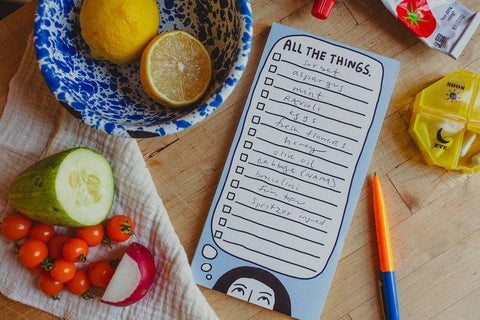 ALL THE THINGS.
sorbet
asparagus
mint
RAVIOLI
eggs
fresh flowers
honey
olive oil
cabbage (NAPA)
broccolini
firm tofu
spritzer ingred.
NOON
EVE.